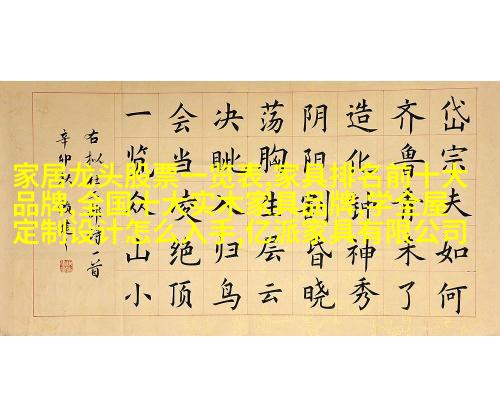 家居龙头股票一览表,家具排名前十大
品牌,全国十大实木家具品牌,学全屋
定制设计怎么入手,亿派家具有限公司
岱宗夫如何
齐鲁青未了
造化钟神秀
阴阳割昏晓
荡胸生层云
决眦入归鸟
会当凌绝顶
一览众山小
右拟杜诗一首
辛卯